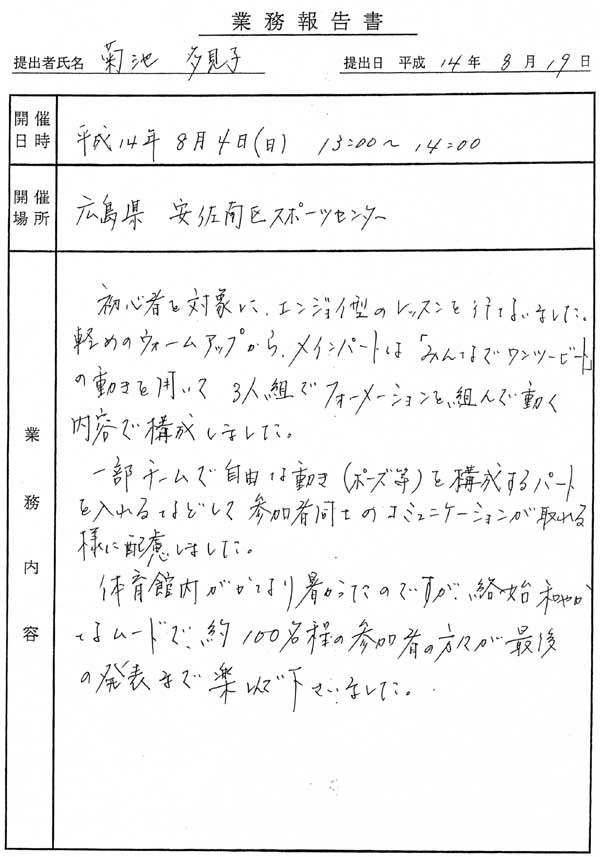 業務報告書
提出者氏名 菊池 多見子
提出日 平成 14年 8月19日
開催日時
平成14年 8月4日(日) 13:00~14:00
開催場所
広島県 安佐南区スポーツセンター
業務内容
初心者を対象に、エンジョイ型のレッスンを行ないました。
軽めのウォームアップから、メインパートは「みんなでワンツービート」
の動きを用いて 3人組でフォーメーションを組んで動く
内容で構成しました。
一部チームで自由な動き(ポーズ等)を構成するパート
を入れるなどして参加者同士のコミュニケーションが取れる
様に配慮しました。
体育館内がかなり暑かったのですが、終始和やか
なムードで、約100名程の参加者の方々が最後
の発表まで楽しんで下さいました。